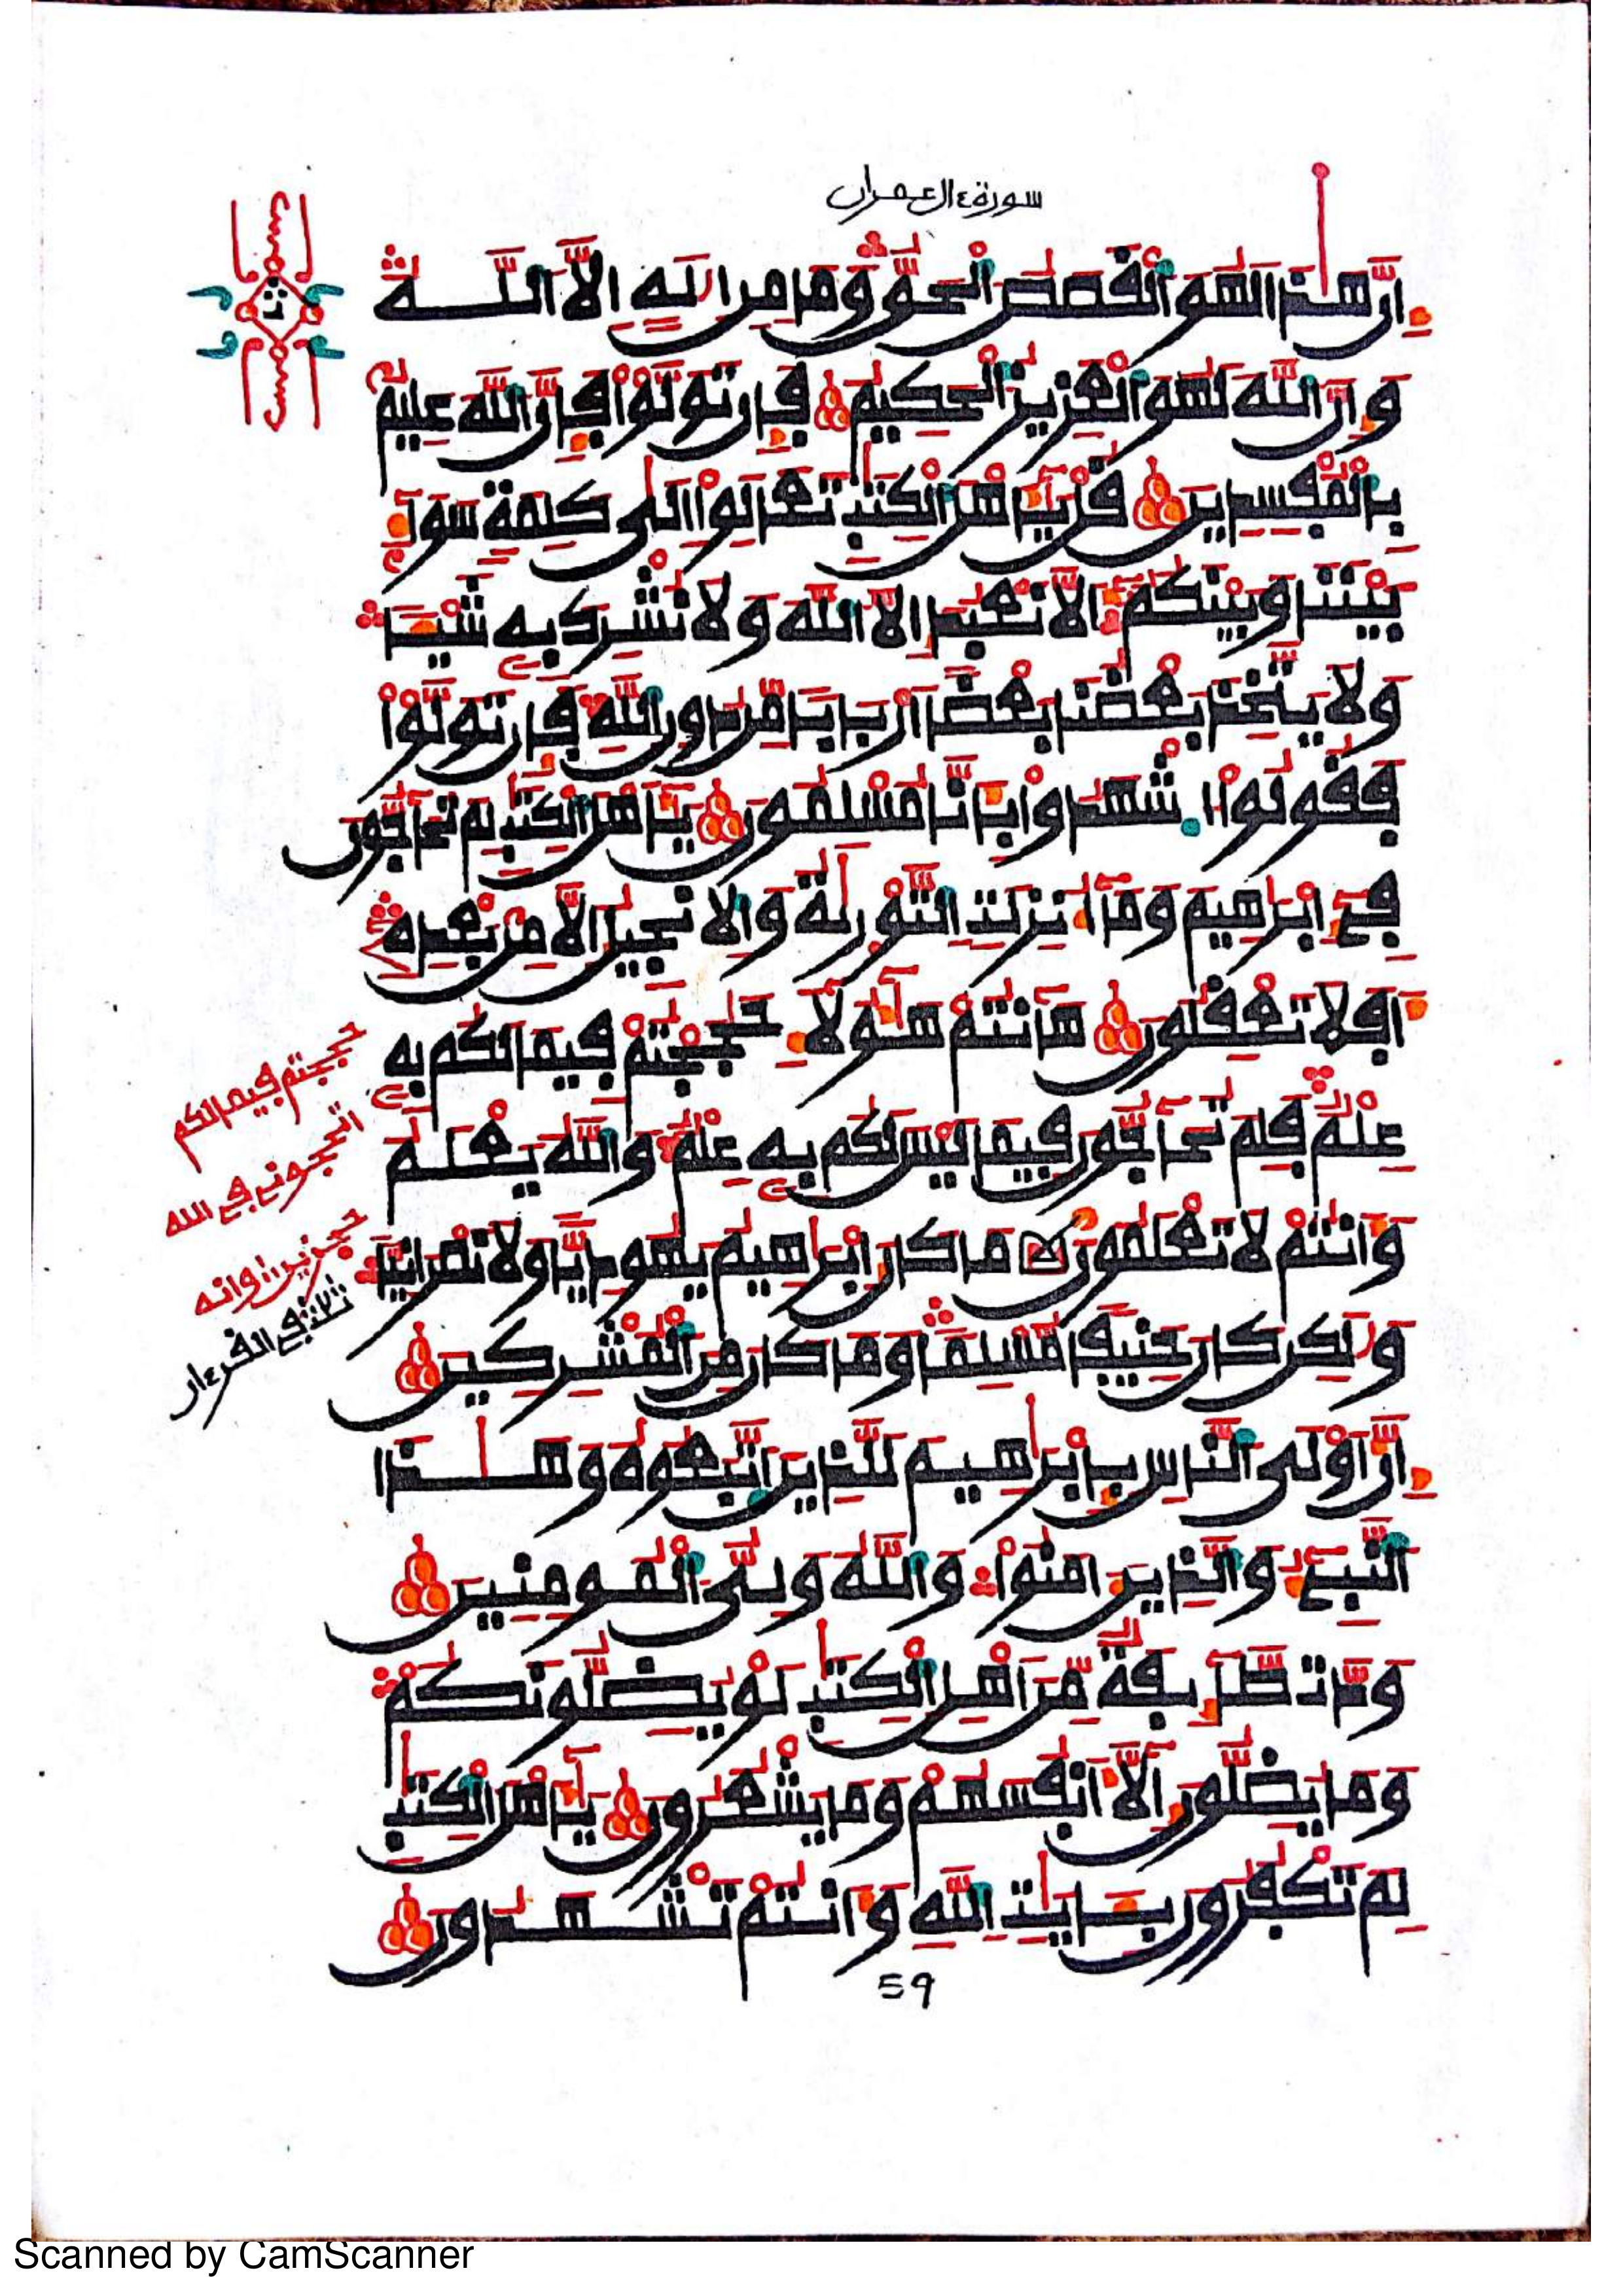 سورة ءال عمران
إِنَّ هَٰذَا لَهُوَ اَ۬لْقَصَصُ اُ۬لْحَقُّ وَمَا مِنِ اِلَٰهٍ اِلَّا اَ۬للَّهُ
وَإِنَّ اَ۬للَّهَ لَهُوَ اَ۬لْعَزِيزُ اُ۬لْحَكِيمُ فَإِن تَوَلَّوْاْ فَإِنَّ اَ۬للَّهَ عَلِيمُۢ
بِالْمُفْسِدِينَ قُلْ يَٰٓأَهْلَ اَ۬لْكِتَٰبِ تَعَالَوِاْ اِلَىٰ كَلِمَةٖ سَوَآءِۢ
بَيْنَنَا وَبَيْنَكُمُۥٓ أَلَّا نَعْبُدَ إِلَّا اَ۬للَّهَ وَلَا نُشْرِكَ بِهِۦ شَيْـٔاٗ
وَلَا يَتَّخِذَ بَعْضُنَا بَعْضاً اَرْبَاباٗ مِّن دُونِ اِ۬للَّهِ فَإِن تَوَلَّوْاْ
فَقُولُواْ اُ۪شْهَدُواْ بِأَنَّا مُسْلِمُونَ يَٰٓأَهْلَ اَ۬لْكِتَٰبِ لِمَ تُحَآجُّونَ
فِےٓ إِبْرَٰهِيمَ وَمَآ أُنزِلَتِ اِ۬لتَّوْر۪يٰةُ وَالِانجِيلُ إِلَّا مِنۢ بَعْدِهِۦٓ
أَفَلَا تَعْقِلُونَ هَآنتُمْ هَٰٓؤُلَآءِ حَٰجَجْتُمْ فِيمَا لَكُم بِهِۦ
عِلْمٞ فَلِمَ تُحَآجُّونَ فِيمَا لَيْسَ لَكُم بِهِۦ عِلْمٞ وَاللَّهُ يَعْلَمُ
وَأَنتُمْ لَا تَعْلَمُونَ مَا كَانَ إِبْرَٰهِيمُ يَهُودِيّاٗ وَلَا نَصْرَانِيّاٗ
وَلَٰكِن كَانَ حَنِيفاٗ مُّسْلِماٗ وَمَا كَانَ مِنَ اَ۬لْمُشْرِكِينَ
إِنَّ أَوْلَى اَ۬لنَّاسِ بِإِبْرَٰهِيمَ لَلَّذِينَ اَ۪تَّبَعُوهُ وَهَٰذَا
اَ۬لنَّبِےٓءُ وَالَّذِينَ ءَامَنُواْ وَاللَّهُ وَلِيُّ اُ۬لْمُومِنِينَ
وَدَّت طَّآئِفَةٞ مِّنَ اَهْلِ اِ۬لْكِتَٰبِ لَوْ يُضِلُّونَكُمْ
وَمَا يُضِلُّونَ إِلَّآ أَنفُسَهُمْ وَمَا يَشْعُرُونَ يَٰٓأَهْلَ اَ۬لْكِتَٰبِ
لِمَ تَكْفُرُونَ بِـَٔايَٰتِ اِ۬للَّهِ وَأَنتُمْ تَشْهَدُونَ
حججتم فيما لكم
اتحجوني في الله
59
Scanned by CamScanner